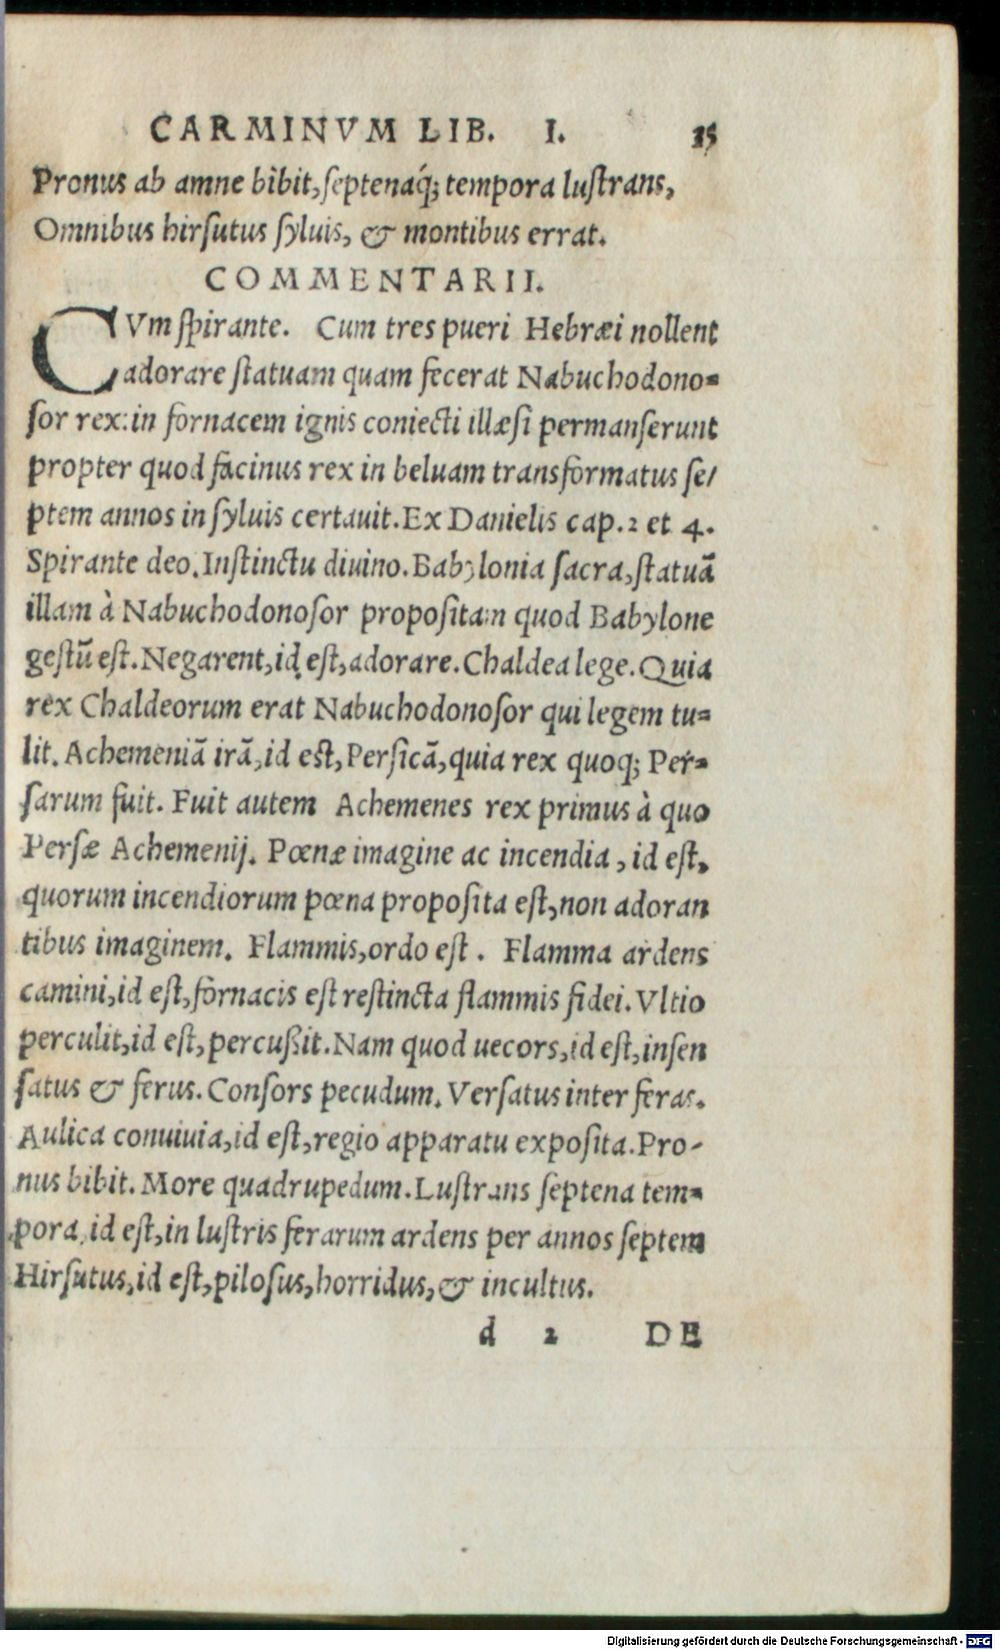 CARMINVM LIB. I. 35
Pronus ab amne bibit, septenaq́; tempora lustrans,
Omnibus hirsutus syluis, & montibus errat.
COMMENTARII.
CVm spirante. Cum tres pueri Hebræi nollent
adorare statuam quam fecerat Nabuchodono=
sor rex: in fornacem ignis coniecti illæsi permanserunt
propter quod facinus rex in beluam transformatus se/
ptem annos in syluis certauit. Ex Danielis cap. 2 et 4.
Spirante deo. Instinctu diuino. Babylonia sacra, statuā
illam à Nabuchodonosor propositam quod Babylone
gestū est. Negarent, id est, adorare. Chaldea lege. Quia
rex Chaldeorum erat Nabuchodonosor qui legem tu=
lit. Achemeniā irā, id est, Persicā, quia rex quoq; Per=
sarum fuit. Fuit autem Achemenes rex primus à quo
Persæ Achemenij. Pœnæ imagine ac incendia, id est,
quorum incendiorum pœna proposita est, non adoran
tibus imaginem. Flammis, ordo est. Flamma ardens
camini, id est, fornacis est restincta flammis fidei. Vltio
perculit, id est, percußit. Nam quod uecors, id est, insen
satus & ferus. Consors pecudum. Versatus inter feras.
Aulica conuiuia, id est, regio apparatu exposita. Pro-
nus bibit. More quadrupedum. Lustrans septena tem=
pora, id est, in lustris ferarum ardens per annos septem
Hirsutus, id est, pilosus, horridus, & incultus.
d 2 DE
Digitalisierung gefördert durch die Deutsche Forschungsgemeinschaft - DFG